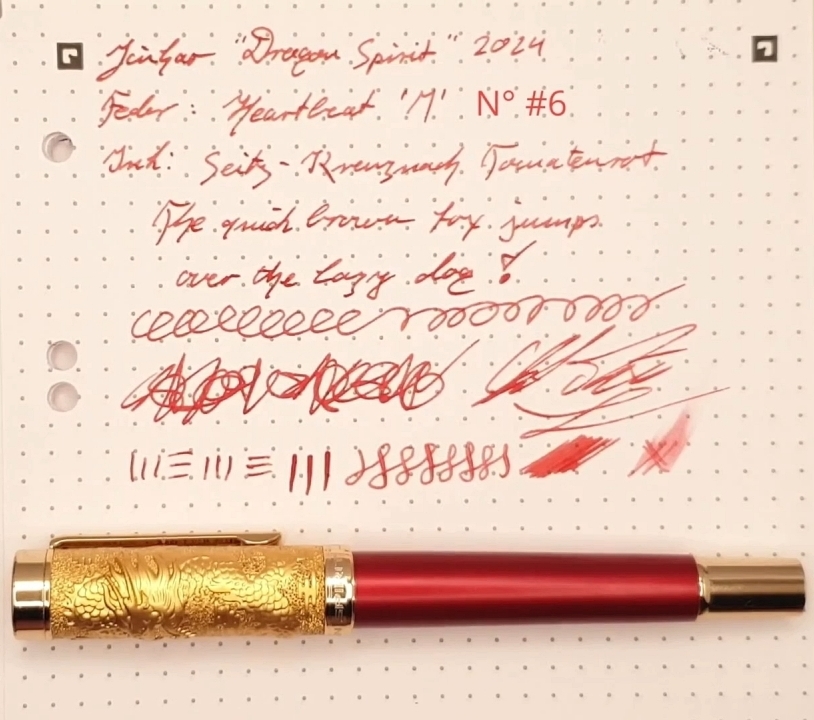 Jinhao "Dragon Spirit" 2024
Feder: Heartbeat 'M' N° #6
Ink: Seitz-Kreuznach Tomatenrot
The quick brown fox jumps
over the lazy dog!